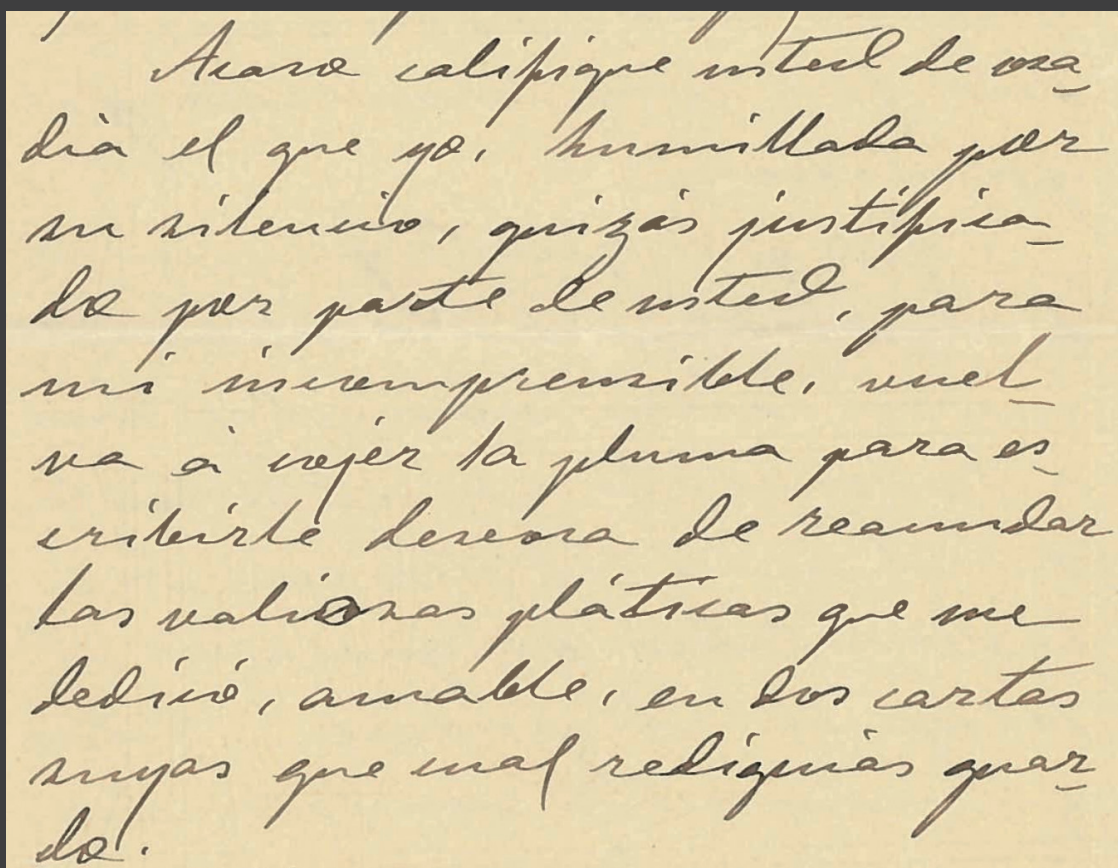 Acaso califique usted de osa-
dia el que yo, humillada por
su silencio, quizás justifica-
do por parte de usted, para
mi incomprensible, vuel-
va á cojer la pluma para es-
cribirle deseosa de reanudar
las valiosas pláticas que me
dedicó, amable, en dos cartas
suyas que cual rediquias guar-
do.